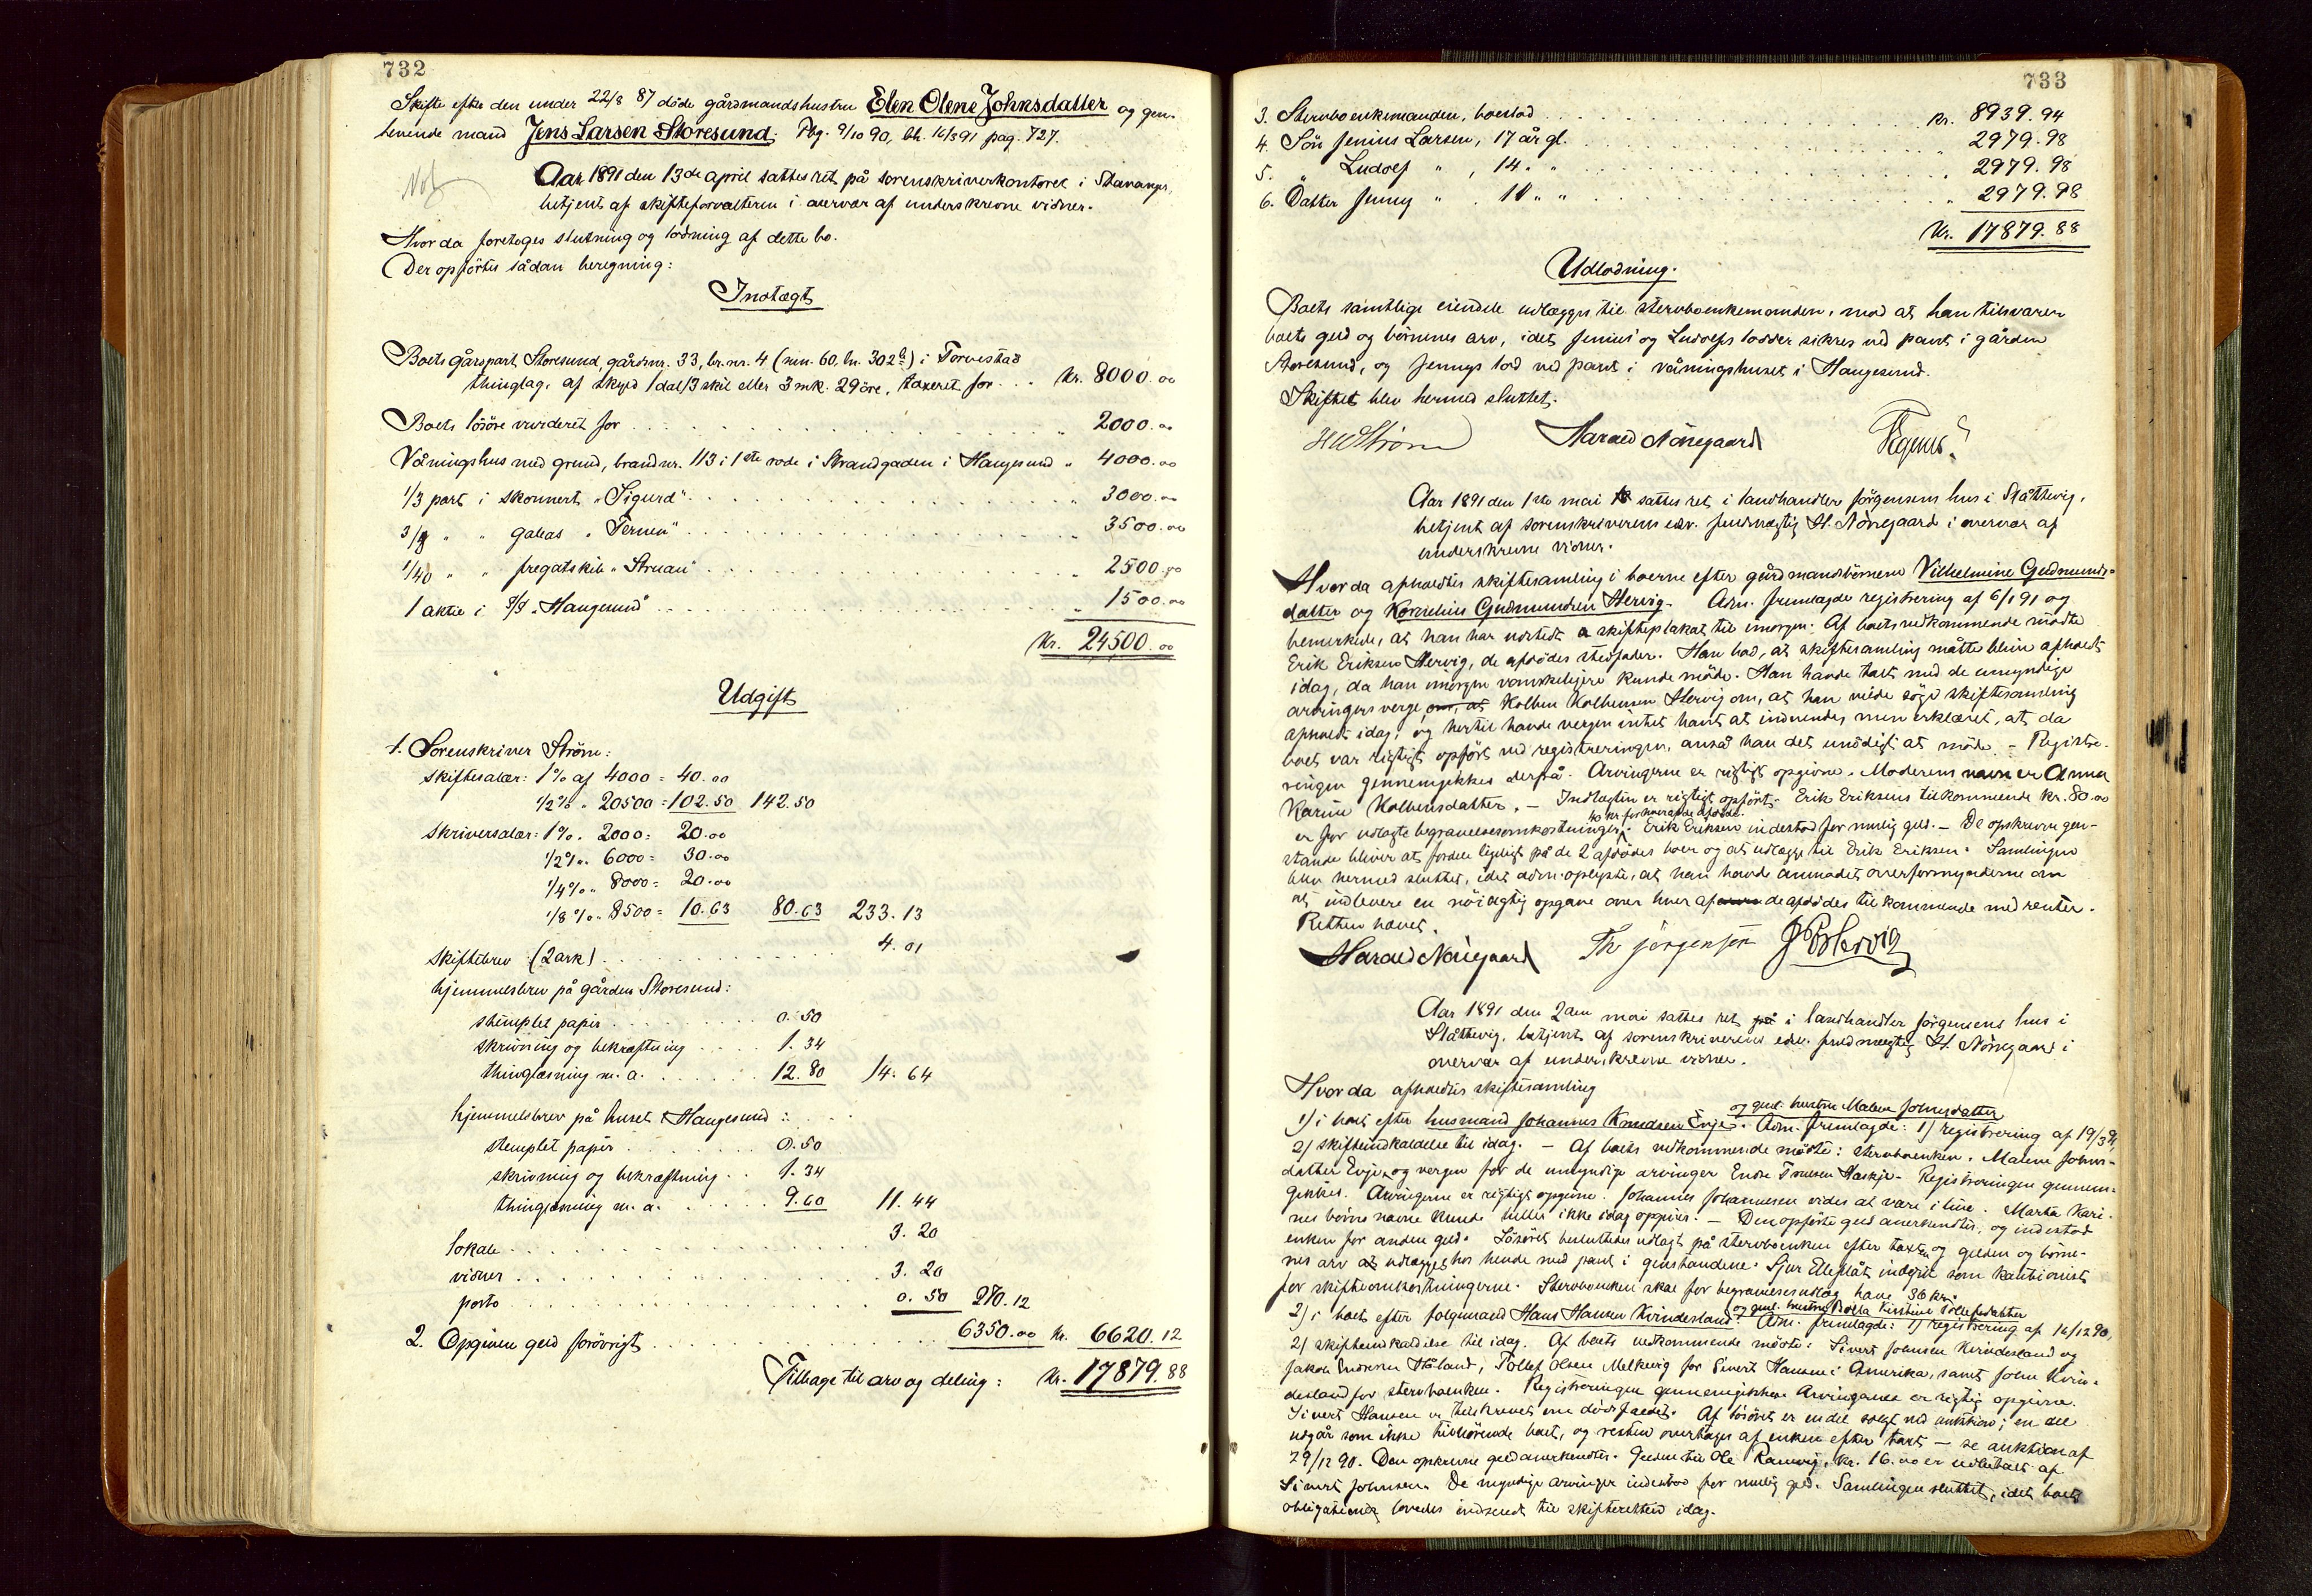 732
Skifte efter den under 22/8 87 döde gårdmandshustru Elen Olene Johnsdatter og gjen-
levende mand Jens Larsen Storesund. Pbg. 9/10 90, bh. 16/3 91 pag. 727.
Aar 1891 den 13de april sattes ret på sorenskriverkontoret i Stavanger,
betjent af skifteforvalteren i overvær af underskrevne vidner.
Hvorda foretoges slutning og lodning af dette bo.
Der opförtes sådan beregning:
Indtægt
Boets gårspart Storesund, gårdsnr. 33, br.nr. 4 (mn. 60, ln. 302 b) i Torvestad
thinglag, af skyld 1 dal. 3 skil eller 3 mk. 29 öre, taxeret for . . . Kr. 8000.00
Boets lösöre vurderet for . . . " 2000.00
Våningshus med grund, brandnr. 113 i 1ste rode i Strandgaden i Haugesund " 4000.00
1/3 part i skonnert "Sigurd" . . . " 3000.00
3/8 " " galeas "Ternen" . . . " 3500.00
1/40 " " fregatskib "Struan" . . . " 2500.00
1 aktie i S/S "Haugesund" . . . " 1500.00
Kr. 24500.00
Udgift
1. Sorenskriver Ström:
Skiftesalær: 1% af 4000 = 40.00
1/2% " 20500 = 102.50 142.50
Skriversalær: 1% " 2000 = 20.00
1/2% " 6000 = 30.00
1/4% " 8000 = 20.00
1/8% " 8500 = 10.63 80.63 233.13
Skiftebrev (2 ark) . . . 4.01
hjemmelsbrev på gården Storesund:
stemplet papir . . . 0.50
skrivning og bekræftning . . . 1.34
thinglæsning m. a. . . . 12.80 14.64
hjemmelsbrev på huset i Haugesund:
stemplet papir . . . 0.50
skrivning og bekræftning . . 1.34
thinglæsning m. a. . . . 9.60 11.44
lokale . . . 3.20
vidner . . . 3.20
porto . . . 0.50 270.12
2. Opgiven gjeld forövrigt . . . 6350.00 Kr. 6620.12
Tilbage til arv og deling: Kr. 17879.88
733
3. Stervboenkemanden, boeslod . . . Kr. 8939.94
4. Sön Jenius Larsen, 17 år gl. . . . " 2979.98
5. " Ludolf " , 14 " " . . . " 2979.98
6. Datter Jenny " . 10 " " . . . " 2979.98
Kr. 17879.88
Udlodning.
Boets samtlige eiendele udlægges til stervboenkemanden, mod at han tilsvarer
boets gjeld og börnenes arv, idet Jenius' og Ludolfs lodder sikres ved pant i gården
Storesund, og Jennys lod ved pant i våningshuset i Haugesund.
Skiftet blev hermed sluttet.
HWStröm Harald Nörregaard
Aar 1891 den 1ste mai sattes ret i landhandler Jörgensens hus i Slåttevig,
betjent af sorenskriverens edsv. fuldmægtig H. Nörregaard i overvær af
underskrevne vidner.
Hvorda afholdtes skiftesamling i boerne efter gårdmandsbörnene Vilhelmine Gudmunds-
datter og Kornelius Gudmundsen Hervig. Adm. fremlagde registrering af 6/1 91 og
bemerkede, at han har udstedt skifteplakat til imorgen. Af boets vedkommende mödte
Erik Eriksen Hervig, de afdödes stedfader. Han bad, at skiftesamling måtte blive afholdt
idag, da han imorgen vanskeligere kunde möde. Han havde talt med de umyndige
arvingers verge, om, at Kolben Kolbensen Hervig om, at han vilde söge skiftesamling
afholdt idag, og hertil havde vergen intet havt at indvende, men erklæret, at da
boet var rigtigt opfört ved registreringen, anså han det unödigt at möde. – Registre-
ringen gjennemgikkes derpå. Arvingerne er rigtigt opgivne. Moderens navn er Anna
Karine Kolbensdatter. – Indtægten er rigtigt opfört. Erik Eriksens tilkommende kr. 80.00
40 kr. for hver af de afdöde.
er for udlagte begravelsesomkostninger. Erik Eriksen indestod for mulig gjeld. – De opskrevne gjen-
stande bliver at fordele ligeligt på de 2 afdödes boer og at udlægge til Erik Eriksen. Samlingen
blev hermed sluttet, idet adm. oplyste, at han havde anmodet overformynderne om
at indlevere en nöiagtig opgave over hver af de afdödes tilkommende med renter.
Retten hævet.
Harald Nörregaard Th Jörgensen
Aar 1891 den 2den mai sattes ret på i landhandler Jörgensens hus i
Slåttevig, betjent af sorenskriverens edsv. fuldmægtig H. Nörregaard i
overvær af underskrevne vidner.
Hvorda afholdtes skiftesamling
og gjenl. hustru Malene Johnsdatter
1) i boet efter husmand Johannes Knudsen Evje. Adm. fremlagde: 1) registrering af 19/3 91,
2) skifteindkaldelse til idag. – Af boets vedkommende mödte: stervboenken, Malene Johns-
datter Evje, og vergen for de umyndige arvinger Endre Haskje. Registreringen gjennem-
gikkes. Arvingerne er rigtigt opgivne. Johannes Johannesen vides at være i live. Marta Kari-
nes börns navne kunde heller ikke idag opgives. – Den opförte gjeld anerkjendtes, og indestod
enken for anden gjeld. Lösöret besluttedes udlagt på stervboenken efter taxten og gjelden og börne-
nes arv at udlægges hos hende med pant i gjenstandene. Sjur indgik som kautionist
for skifteomkostningerne. Stervboenken skal for begravelsesudlæg have 36 kr.
og gjenl. hustru Kirstine Tollefsdatter
2) i boet efter folgemand Hans Hansen Kvindesland. Adm. fremlagde: 1) registrering af 16/12 90,
2) skifteindkaldelse til idag. Af boets vedkommende mödte: Sivert Johnsen Kvindesland og
Jakob Endresen Håland, Tollef Olsen Melkevig for Sivert Hansen i Amerika, samt John Kvin-
desland for stervboenken. Registreringen gjennemgikkes. Arvingerne er rigtig opgivne.
Sivert Hansen er tilskrevet om dödsfaldet. Af lösöret er en del solgt ved auktion; en del
udgår som ikke tilhörende boet, og resten overtages af enken efter taxt – se auktion af
29/12 90. Den opskrevne gjeld anerkjendtes. Gjelden til Ole Ramvig, kr. 16.00 er udbetalt af
Sivert Johnsen. De myndige arvinger indestod for mulig gjeld. Samlingen sluttet, idet boets
obligationer lovedes indsendt til skifteretten idag.